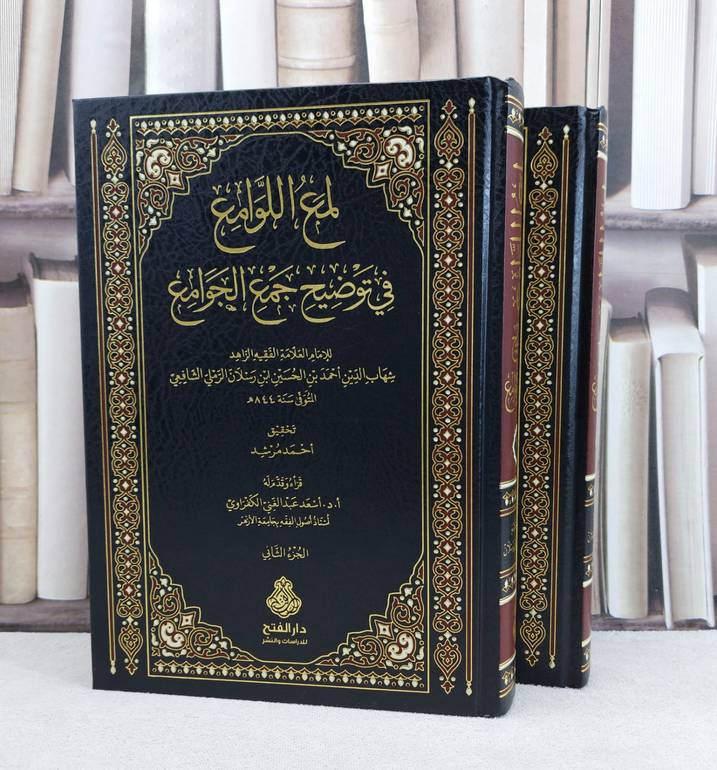 لمع اللَّوامِع
فِي تَوْضِيحِ جَمْعِ الجَوَامِع
للإمَامِ العَلّامَةِ الفَقِيهِ الزّاهِدِ
شِهَابِ الدِّينِ أحْمَدَ بْنِ الحُسَيْنِ ابْنِ رَسْلَانَ الرَّمْلِيِّ الشَّافِعِيِّ
المُتَوَفَّى سَنَة ٨٤٤ھ
تَحْقِيق
أحْمَد مُرْشِد
قَرَأهُ وَقَدَّمَ لَهُ
أ.د. أسْعَد عَبْد الغَنِيّ الكَفْرَاوِيّ
أُسْتَاذُ أصُولِ الفِقْهِ بِجَامِعَةِ الأزْهَرِ
الجُزْءُ الثَّانِي
دار الفتح
للدراسات والنشر